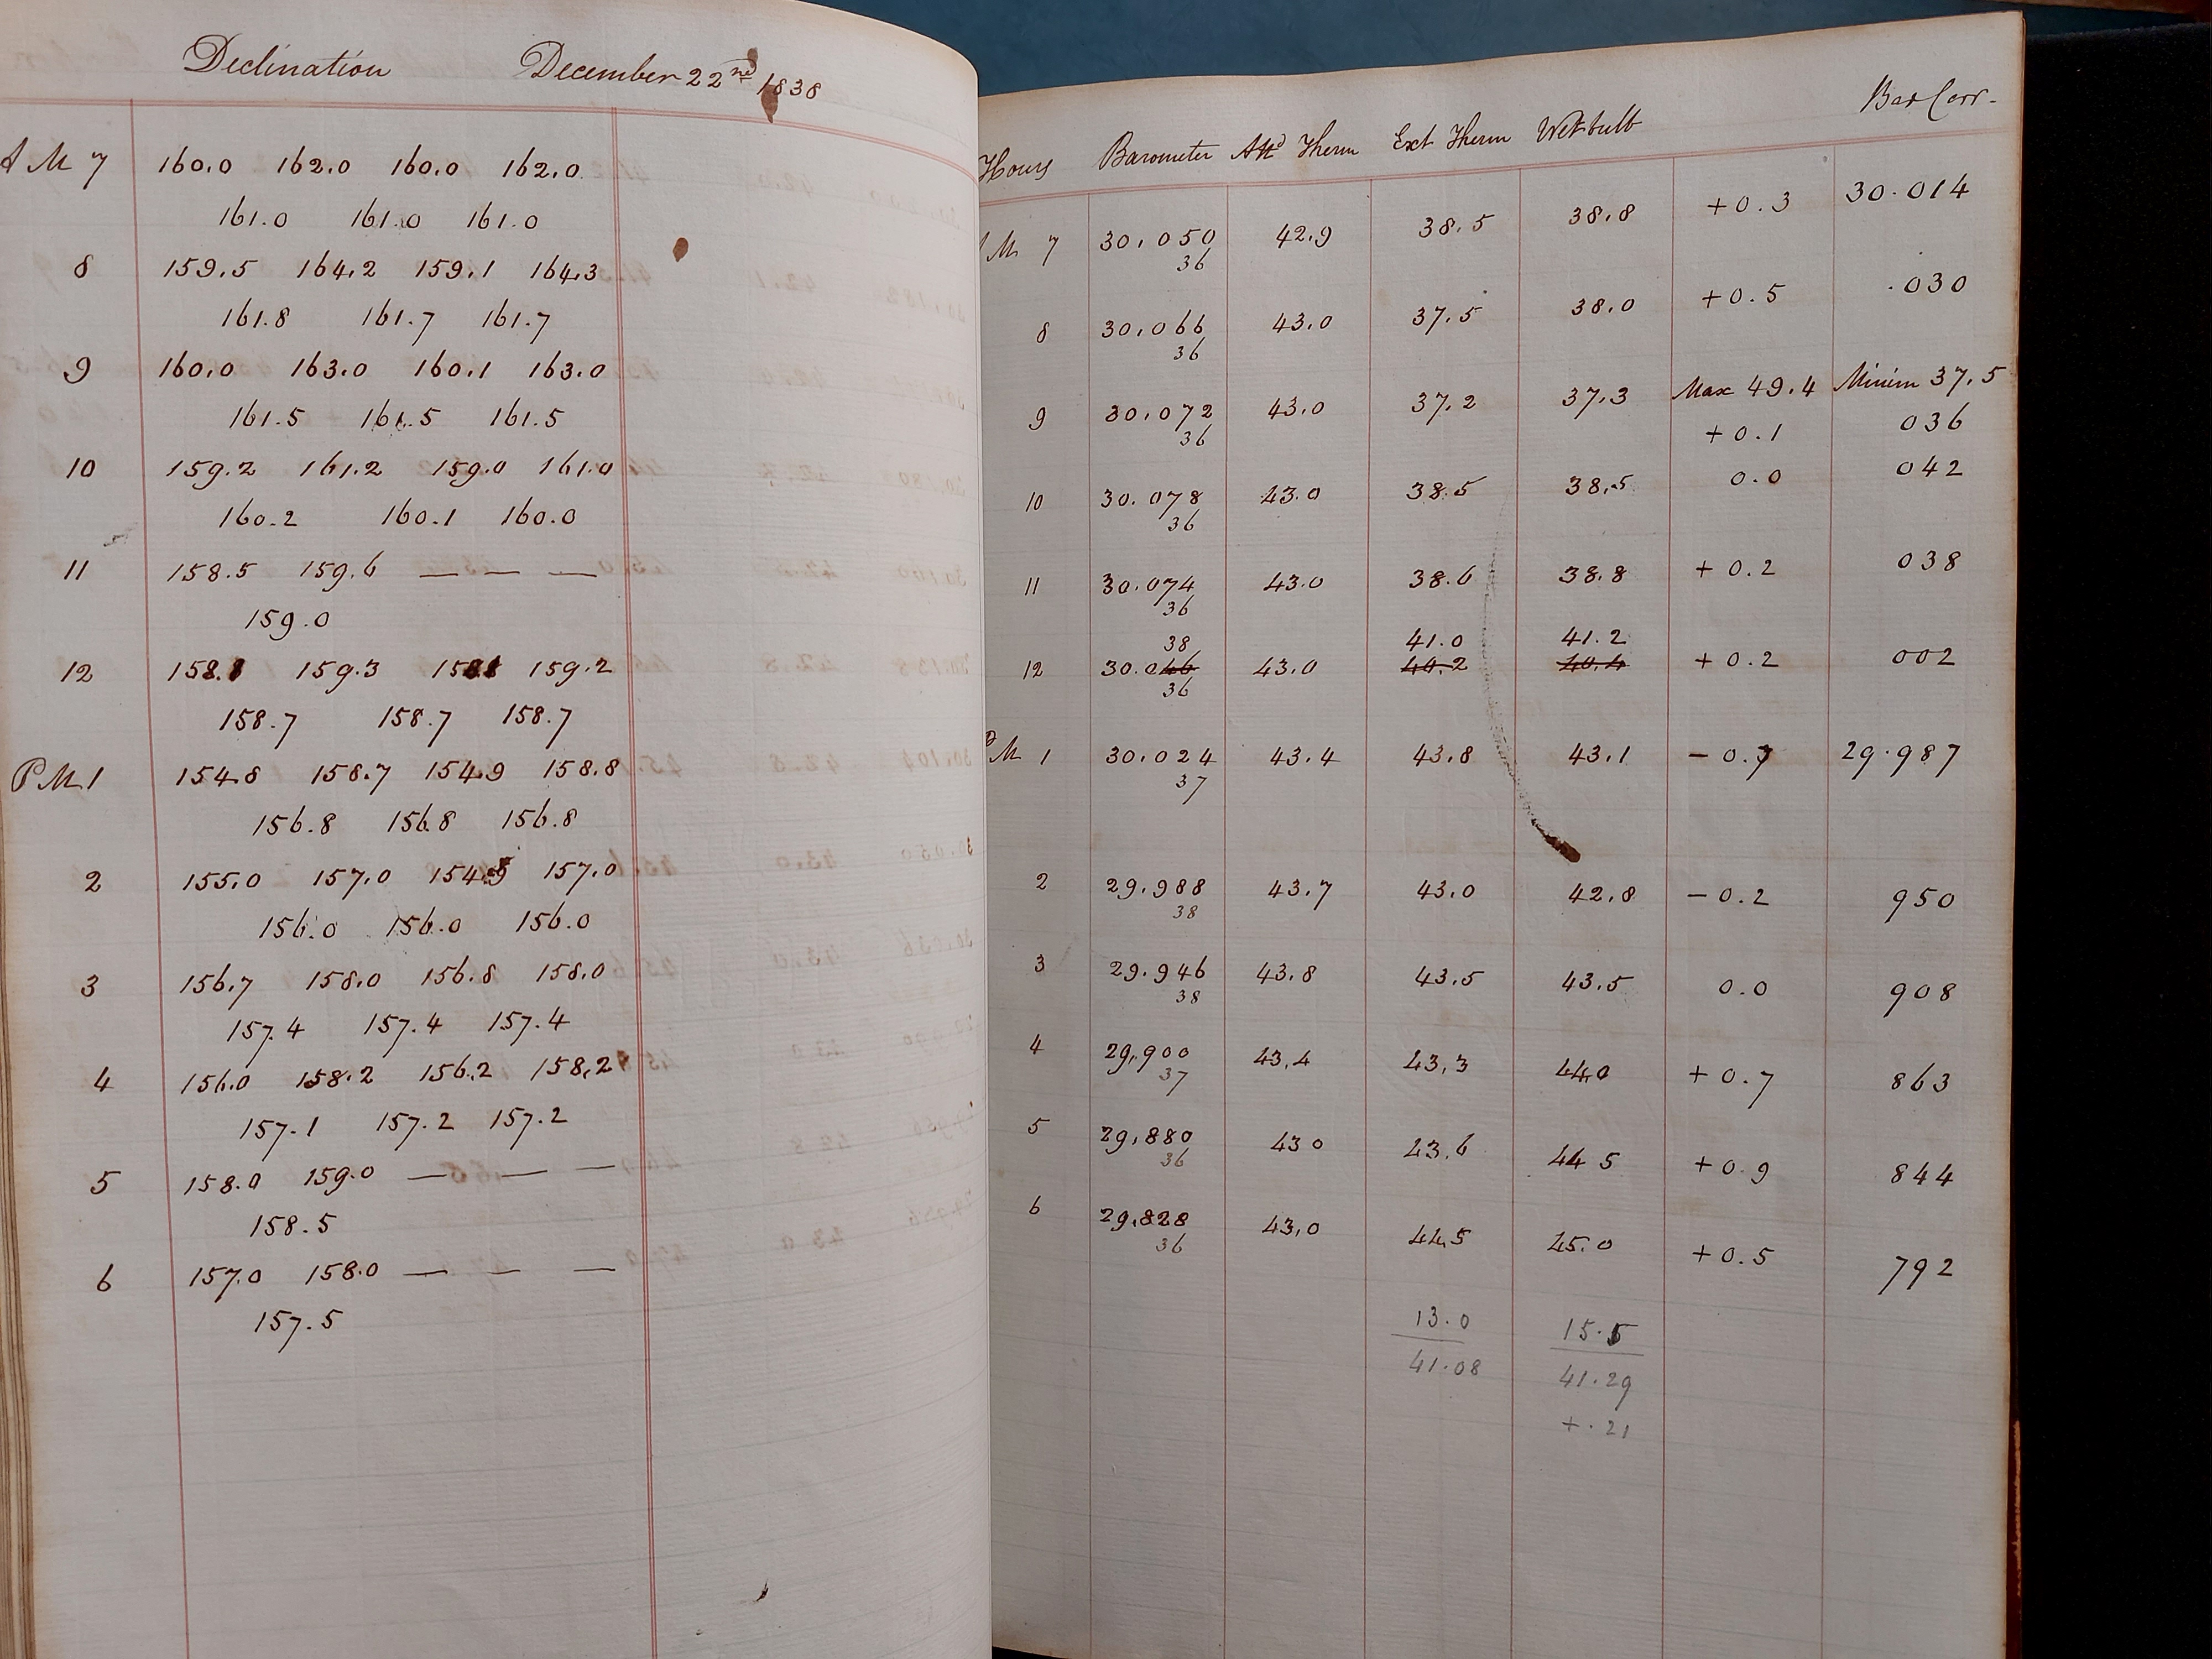 Declination December 22nd 1838
A M 7 160.0 162.0 160.0 162.0
161.0 161.0 161.0
8 159.5 164.2 159.1 164.3
161.8 161.7 161.7
9 160.0 163.0 160.1 163.0
161.5 161.5 161.5
10 159.2 161.2 159.0 161.0
160.2 160.1 160.0
11 158.5 159.6 — — —
159.0
12 158.1 159.3 158.1 159.2
158.7 158.7 158.7
P M 1 154.8 158.7 154.9 158.8
156.8 156.8 156.8
2 155.0 157.0 154.9 157.0
156.0 156.0 156.0
3 156.7 158.0 156.8 158.0
157.4 157.4 157.4
4 156.0 158.2 156.2 158.2
157.1 157.2 157.2
5 158.0 159.0 — — —
158.5
6 157.0 158.0 — — —
157.5
Hours Barometer Attd Therm Ext Therm Wet bulb Bar Corr.
M 7 30.050 42.9 38.5 38.8 +0.3 30.014
36
8 30.066 43.0 37.5 38.0 +0.5 .030
36
Max 49.4 Minim 37.5
9 30.072 43.0 37.2 37.3 +0.1 036
36
10 30.078 43.0 38.5 38.5 0.0 042
36
11 30.074 43.0 38.6 38.8 +0.2 038
36
38 41.0 41.2
12 30.046 43.0 40.2 40.4 +0.2 002
36
PM 1 30.024 43.4 43.8 43.1 -0.7 29.987
37
2 29.988 43.7 43.0 42.8 -0.2 950
38
3 29.946 43.8 43.5 43.5 0.0 908
38
4 29.900 43.4 43.3 44.0 +0.7 863
37
5 29.880 43 0 43.6 44 5 +0.9 844
36
6 29.828 43.0 44.5 45.0 +0.5 792
36
13.0 15.5
41.08 41.29
+.21